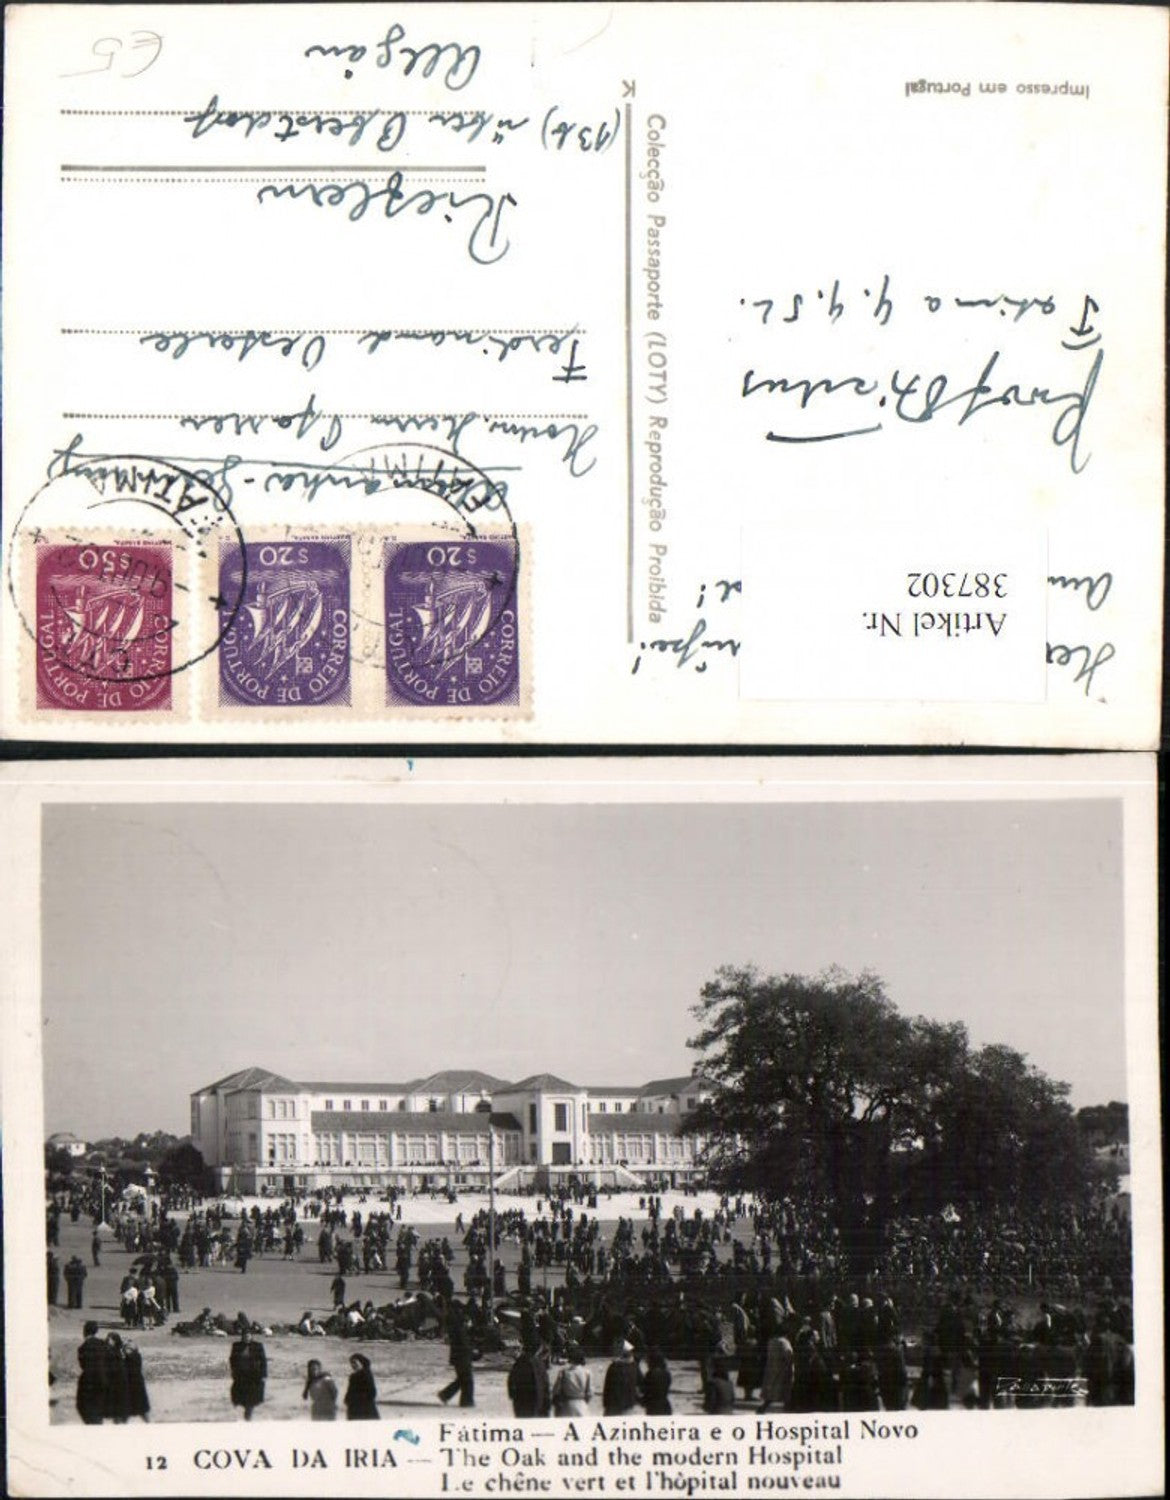 Impresso em Portugal
Fatima 9.4.52.
Artikel Nr.
387302
Colecção Passaporte (LOTY) Reprodução Proibida
K
Alemanha-Germany
Herrn Pfarrer
Ferdinand
Riezlern
(13b) über Oberstdorf
Allgäu
€5
CORREIO DE PORTUGAL
$20
CORREIO DE PORTUGAL
$20
CORREIO DE PORTUGAL
$50
FATIMA
FATIMA
12 COVA DA IRIA —
Fátima — A Azinheira e o Hospital Novo
The Oak and the modern Hospital
Le chêne vert et l'hôpital nouveau
Passaporte